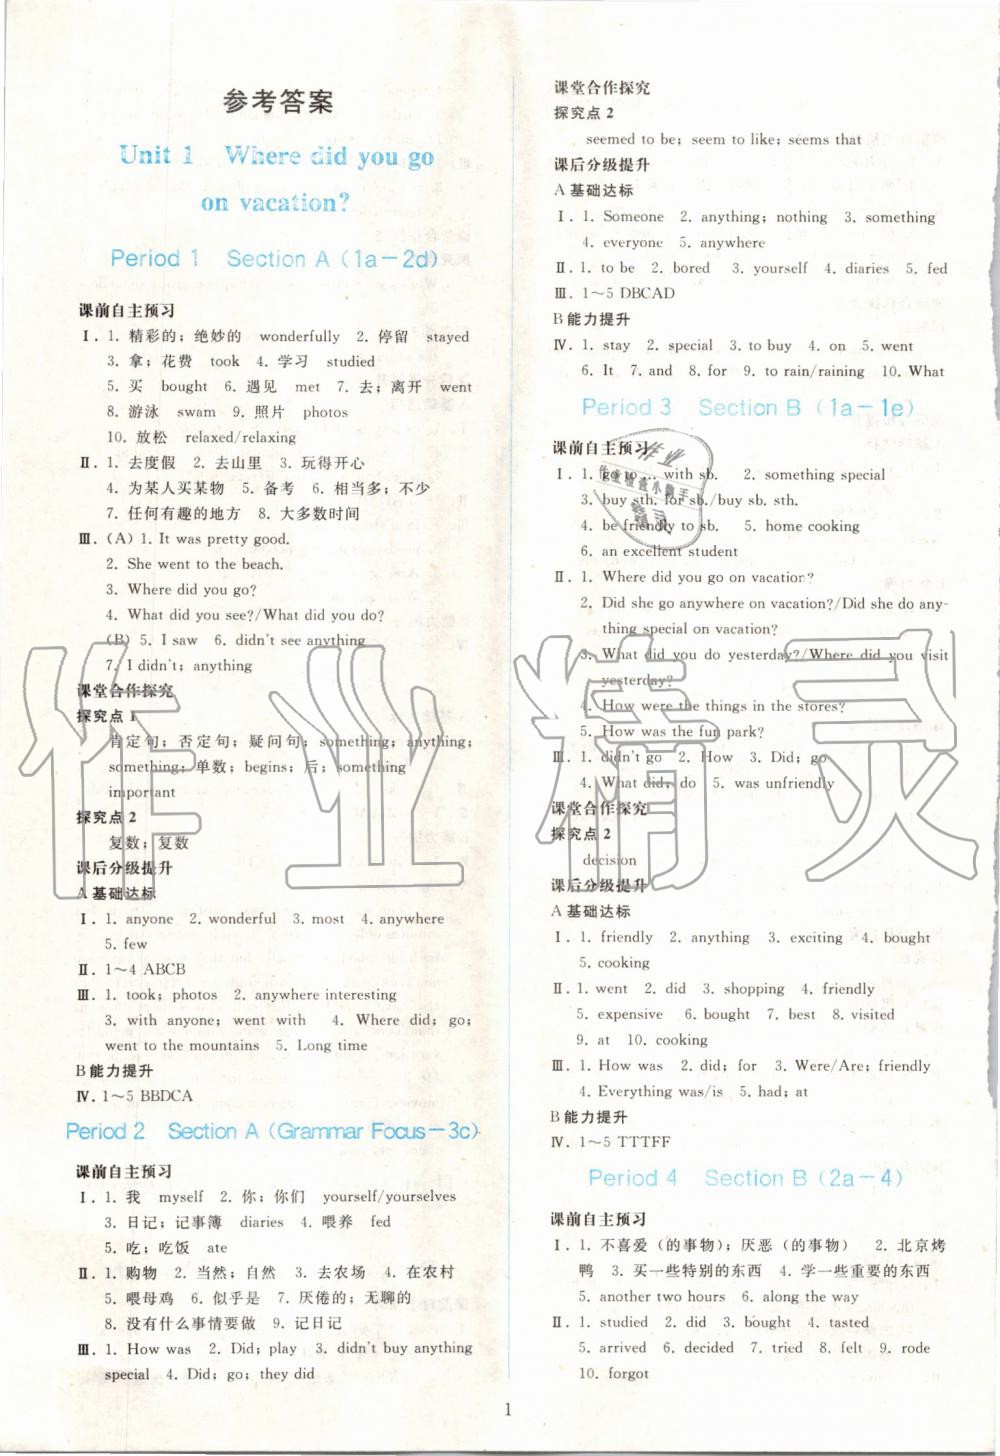 参考答案
Unit 1 Where did you go
on vacation?
Period 1 Section A (1a－2d)
课前自主预习
Ⅰ. 1. 精彩的；绝妙的 wonderfully 2. 停留 stayed
3. 拿；花费 took 4. 学习 studied
5. 买 bought 6. 遇见 met 7. 去；离开 went
8. 游泳 swam 9. 照片 photos
10. 放松 relaxed/relaxing
Ⅱ. 1. 去度假 2. 去山里 3. 玩得开心
4. 为某人买某物 5. 备考 6. 相当多；不少
7. 任何有趣的地方 8. 大多数时间
Ⅲ. (A) 1. It was pretty good.
2. She went to the beach.
3. Where did you go?
4. What did you see?/What did you do?
(B) 5. I saw 6. didn't see anything
7. I didn't; anything
课堂合作探究
探究点 1
肯定句；否定句；疑问句；something；anything；
something；单数；begins；后；something
important
探究点 2
复数；复数
课后分级提升
A 基础达标
Ⅰ. 1. anyone 2. wonderful 3. most 4. anywhere
5. few
Ⅱ. 1～4 ABCB
Ⅲ. 1. took; photos 2. anywhere interesting
3. with anyone; went with 4. Where did; go;
went to the mountains 5. Long time
B 能力提升
Ⅳ. 1～5 BBDCA
Period 2 Section A (Grammar Focus－3c)
课前自主预习
Ⅰ. 1. 我 myself 2. 你；你们 yourself/yourselves
3. 日记；记事簿 diaries 4. 喂养 fed
5. 吃；吃饭 ate
Ⅱ. 1. 购物 2. 当然；自然 3. 去农场 4. 在农村
5. 喂母鸡 6. 似乎是 7. 厌倦的；无聊的
8. 没有什么事情要做 9. 记日记
Ⅲ. 1. How was 2. Did; play 3. didn't buy anything
special 4. Did; go; they did
课堂合作探究
探究点 2
seemed to be; seem to like; seems that
课后分级提升
A 基础达标
Ⅰ. 1. Someone 2. anything; nothing 3. something
4. everyone 5. anywhere
Ⅱ. 1. to be 2. bored 3. yourself 4. diaries 5. fed
Ⅲ. 1～5 DBCAD
B 能力提升
Ⅳ. 1. stay 2. special 3. to buy 4. on 5. went
6. It 7. and 8. for 9. to rain/raining 10. What
Period 3 Section B (1a－1e)
课前自主预习
Ⅰ. 1. go to … with sb. 2. something special
3. buy sth. for sb./buy sb. sth.
4. be friendly to sb. 5. home cooking
6. an excellent student
Ⅱ. 1. Where did you go on vacation?
2. Did she go anywhere on vacation?/Did she do any-
thing special on vacation?
3. What did you do yesterday?/Where did you visit
yesterday?
4. How were the things in the stores?
5. How was the fun park?
Ⅲ. 1. didn't go 2. How 3. Did; go
4. What did; do 5. was unfriendly
课堂合作探究
探究点 2
decision
课后分级提升
A 基础达标
Ⅰ. 1. friendly 2. anything 3. exciting 4. bought
5. cooking
Ⅱ. 1. went 2. did 3. shopping 4. friendly
5. expensive 6. bought 7. best 8. visited
9. at 10. cooking
Ⅲ. 1. How was 2. did; for 3. Were/Are; friendly
4. Everything was/is 5. had; at
B 能力提升
Ⅳ. 1～5 TTTFF
Period 4 Section B (2a－4)
课前自主预习
Ⅰ. 1. 不喜爱（的事物）；厌恶（的事物） 2. 北京烤
鸭 3. 买一些特别的东西 4. 学一些重要的东西
5. another two hours 6. along the way
Ⅱ. 1. studied 2. did 3. bought 4. tasted
5. arrived 6. decided 7. tried 8. felt 9. rode
10. forgot
1
作业精灵